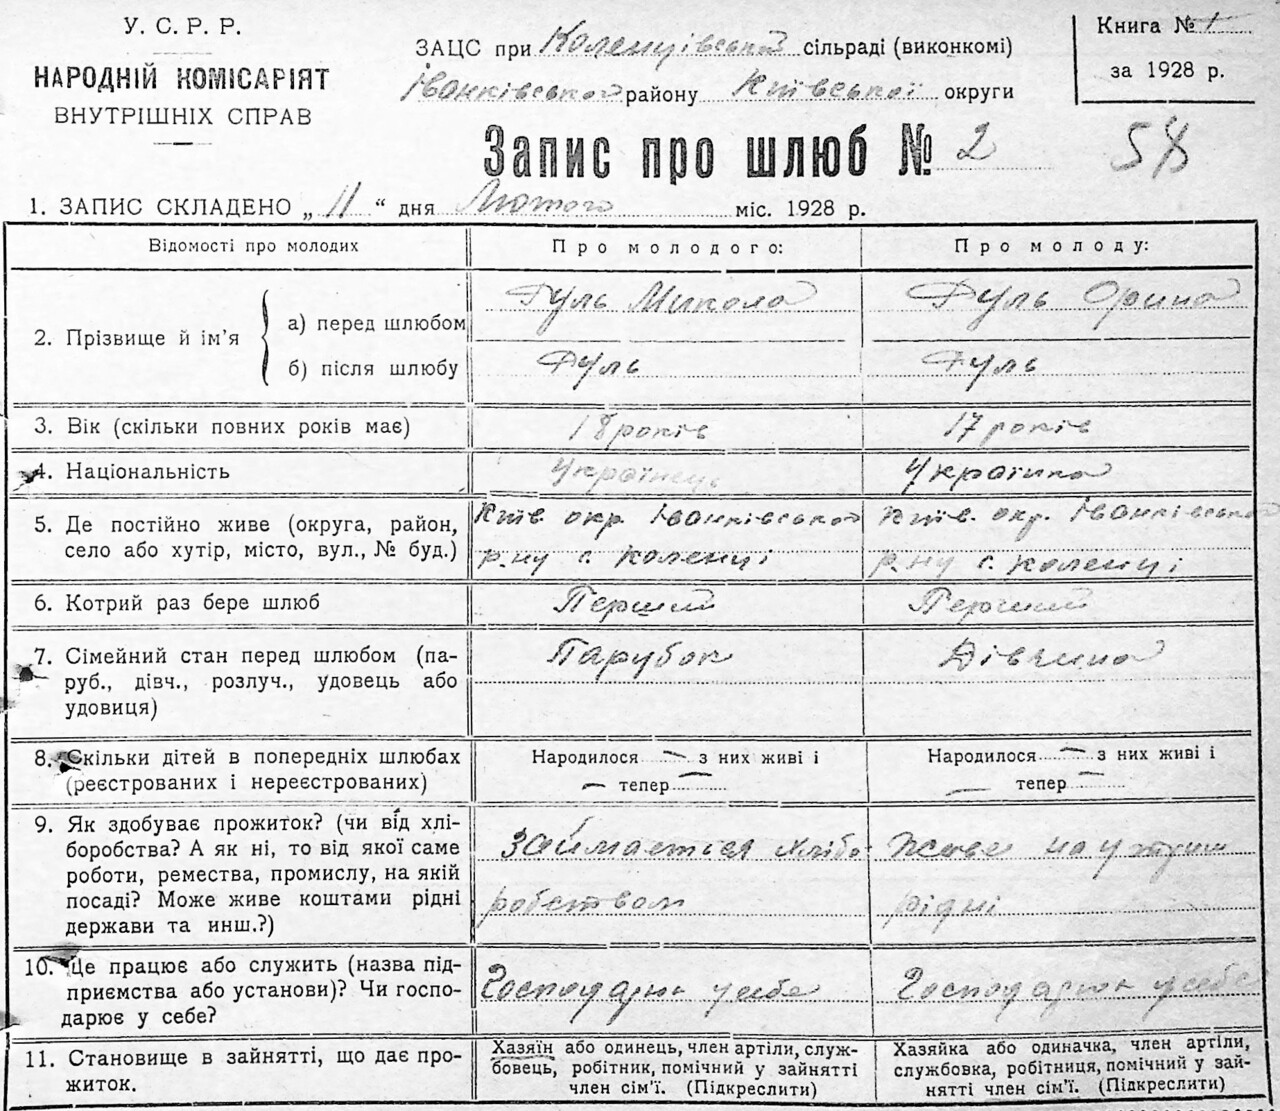 У. С. Р. Р.
НАРОДНІЙ КОМІСАРІЯТ
ВНУТРІШНІХ СПРАВ
ЗАЦС при Коленцівській сільраді (виконкомі)
Іванківського району Київської округи
Книга № 1
за 1928 р.
Запис про шлюб № 2
58
1. ЗАПИС СКЛАДЕНО „ 11 “ дня Лютого міс. 1928 р.
Відомості про молодих
Про молодого:
Про молоду:
2. Прізвище й ім'я
а) перед шлюбом
Гуль Микола
Гуль Орина
б) після шлюбу
Гуль
Гуль
3. Вік (скільки повних років має)
18 років
17 років
4. Національність
Українець
Українка
5. Де постійно живе (округа, район,
село або хутір, місто, вул., № буд.)
Київ. окр. Іванківського
р-ну с. Коленці
Київ. окр. Іванківського
р-ну с. Коленці
6. Котрий раз бере шлюб
Перший
Перший
7. Сімейний стан перед шлюбом (па-
руб., дівч., розлуч., удовець або
удовиця)
Парубок
Дівчина
8. Скільки дітей в попередніх шлюбах
(реєстрованих і нереєстрованих)
Народилося — з них живі і
— тепер —
Народилося — з них живі і
— тепер —
9. Як здобуває прожиток? (чи від хлі-
боробства? А як ні, то від якої саме
роботи, ремества, промислу, на якій
посаді? Може живе коштами рідні
держави та инш.?)
Займается хлібо
робством
Живе на
рідні
10. Це працює або служить (назва під-
приємства або установи)? Чи госпо-
дарює у себе?
Господарює у себе
Господарює у себе
11. Становище в зайнятті, що дає про-
житок.
Хазяїн або одинець, член артіли, служ-
бовець, робітник, помічний у зайнятті
член сім'ї. (Підкреслити)
Хазяйка або одиначка, член артіли,
службовка, робітниця, помічний у зай-
нятті член сім'ї. (Підкреслити)